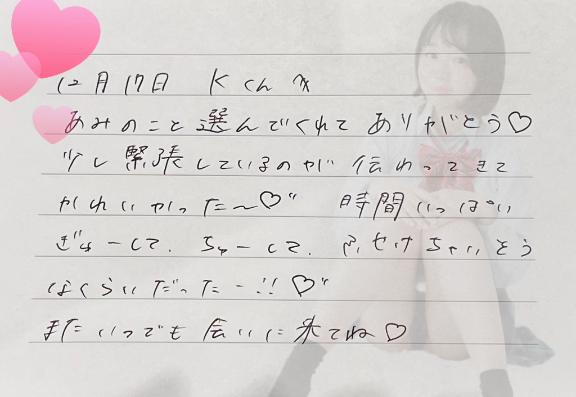 12月17日 Kくんへ
あみのこと選んでくれて ありがとう♡
少し緊張しているのが 伝わってきて
かわいかった〜♡" 時間いっぱい
ぎゅーして、ちゅーして、ふやけちゃいそう
なくらいだったー!!♡"
またいつでも会いに来てね♡